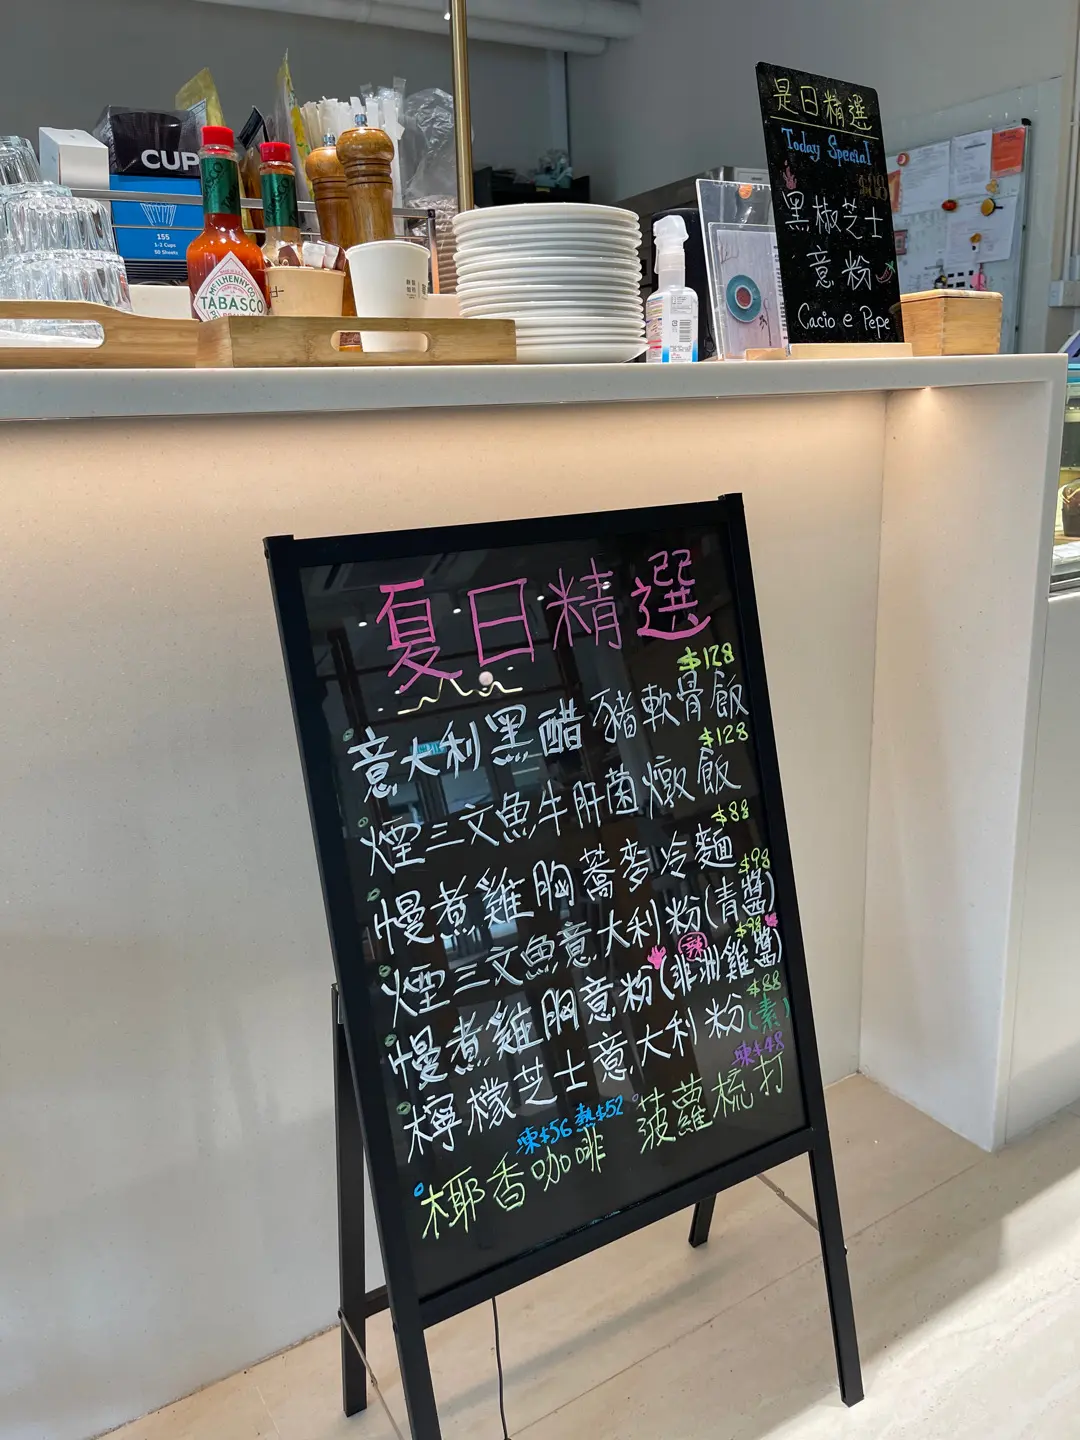 CUP
155
1-2 Cups
50 Sheets
TABASCO
McILHENNY CO.
TABASCO
是日精選
Today Special
黑椒芝士
意粉
Cacio e Pepe
夏日精選
$128
意大利黑醋豬軟骨飯
$128
煙三文魚牛肝菌燉飯
$88
慢煮雞胸蕎麥冷麵
$98
煙三文魚意大利粉(青醬)
$98
辣
慢煮雞胸意粉(非洲雞醬)
$88
檸檬芝士意大利粉(素)
凍$56 熱$52
凍$48
椰香咖啡 菠蘿梳打